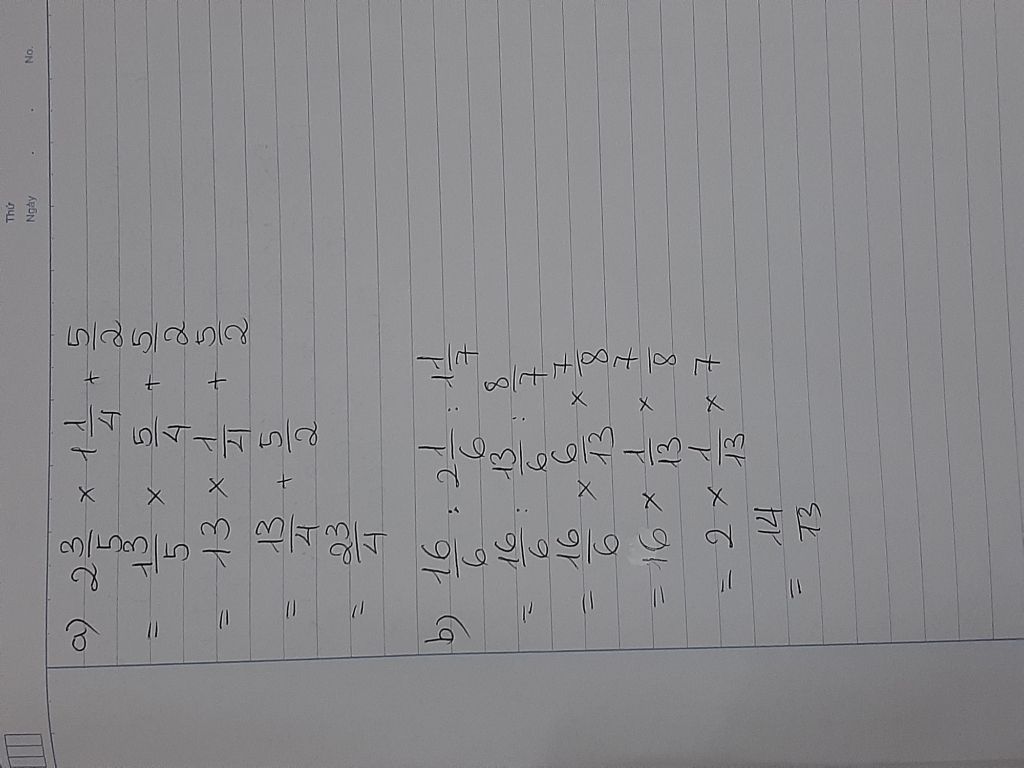 Thứ
Ngày . . No.
a) 2 3/5 × 1 1/4 + 5/2
= 13/5 × 5/4 + 5/2
= 13 × 1/4 + 5/2
= 13/4 + 5/2
= 23/4
b) 16/6 : 2 1/6 : 1 1/7
= 16/6 : 13/6 : 8/7
= 16/6 × 6/13 × 7/8
= 16 × 1/13 × 7/8
= 2 × 1/13 × 7
= 14/13